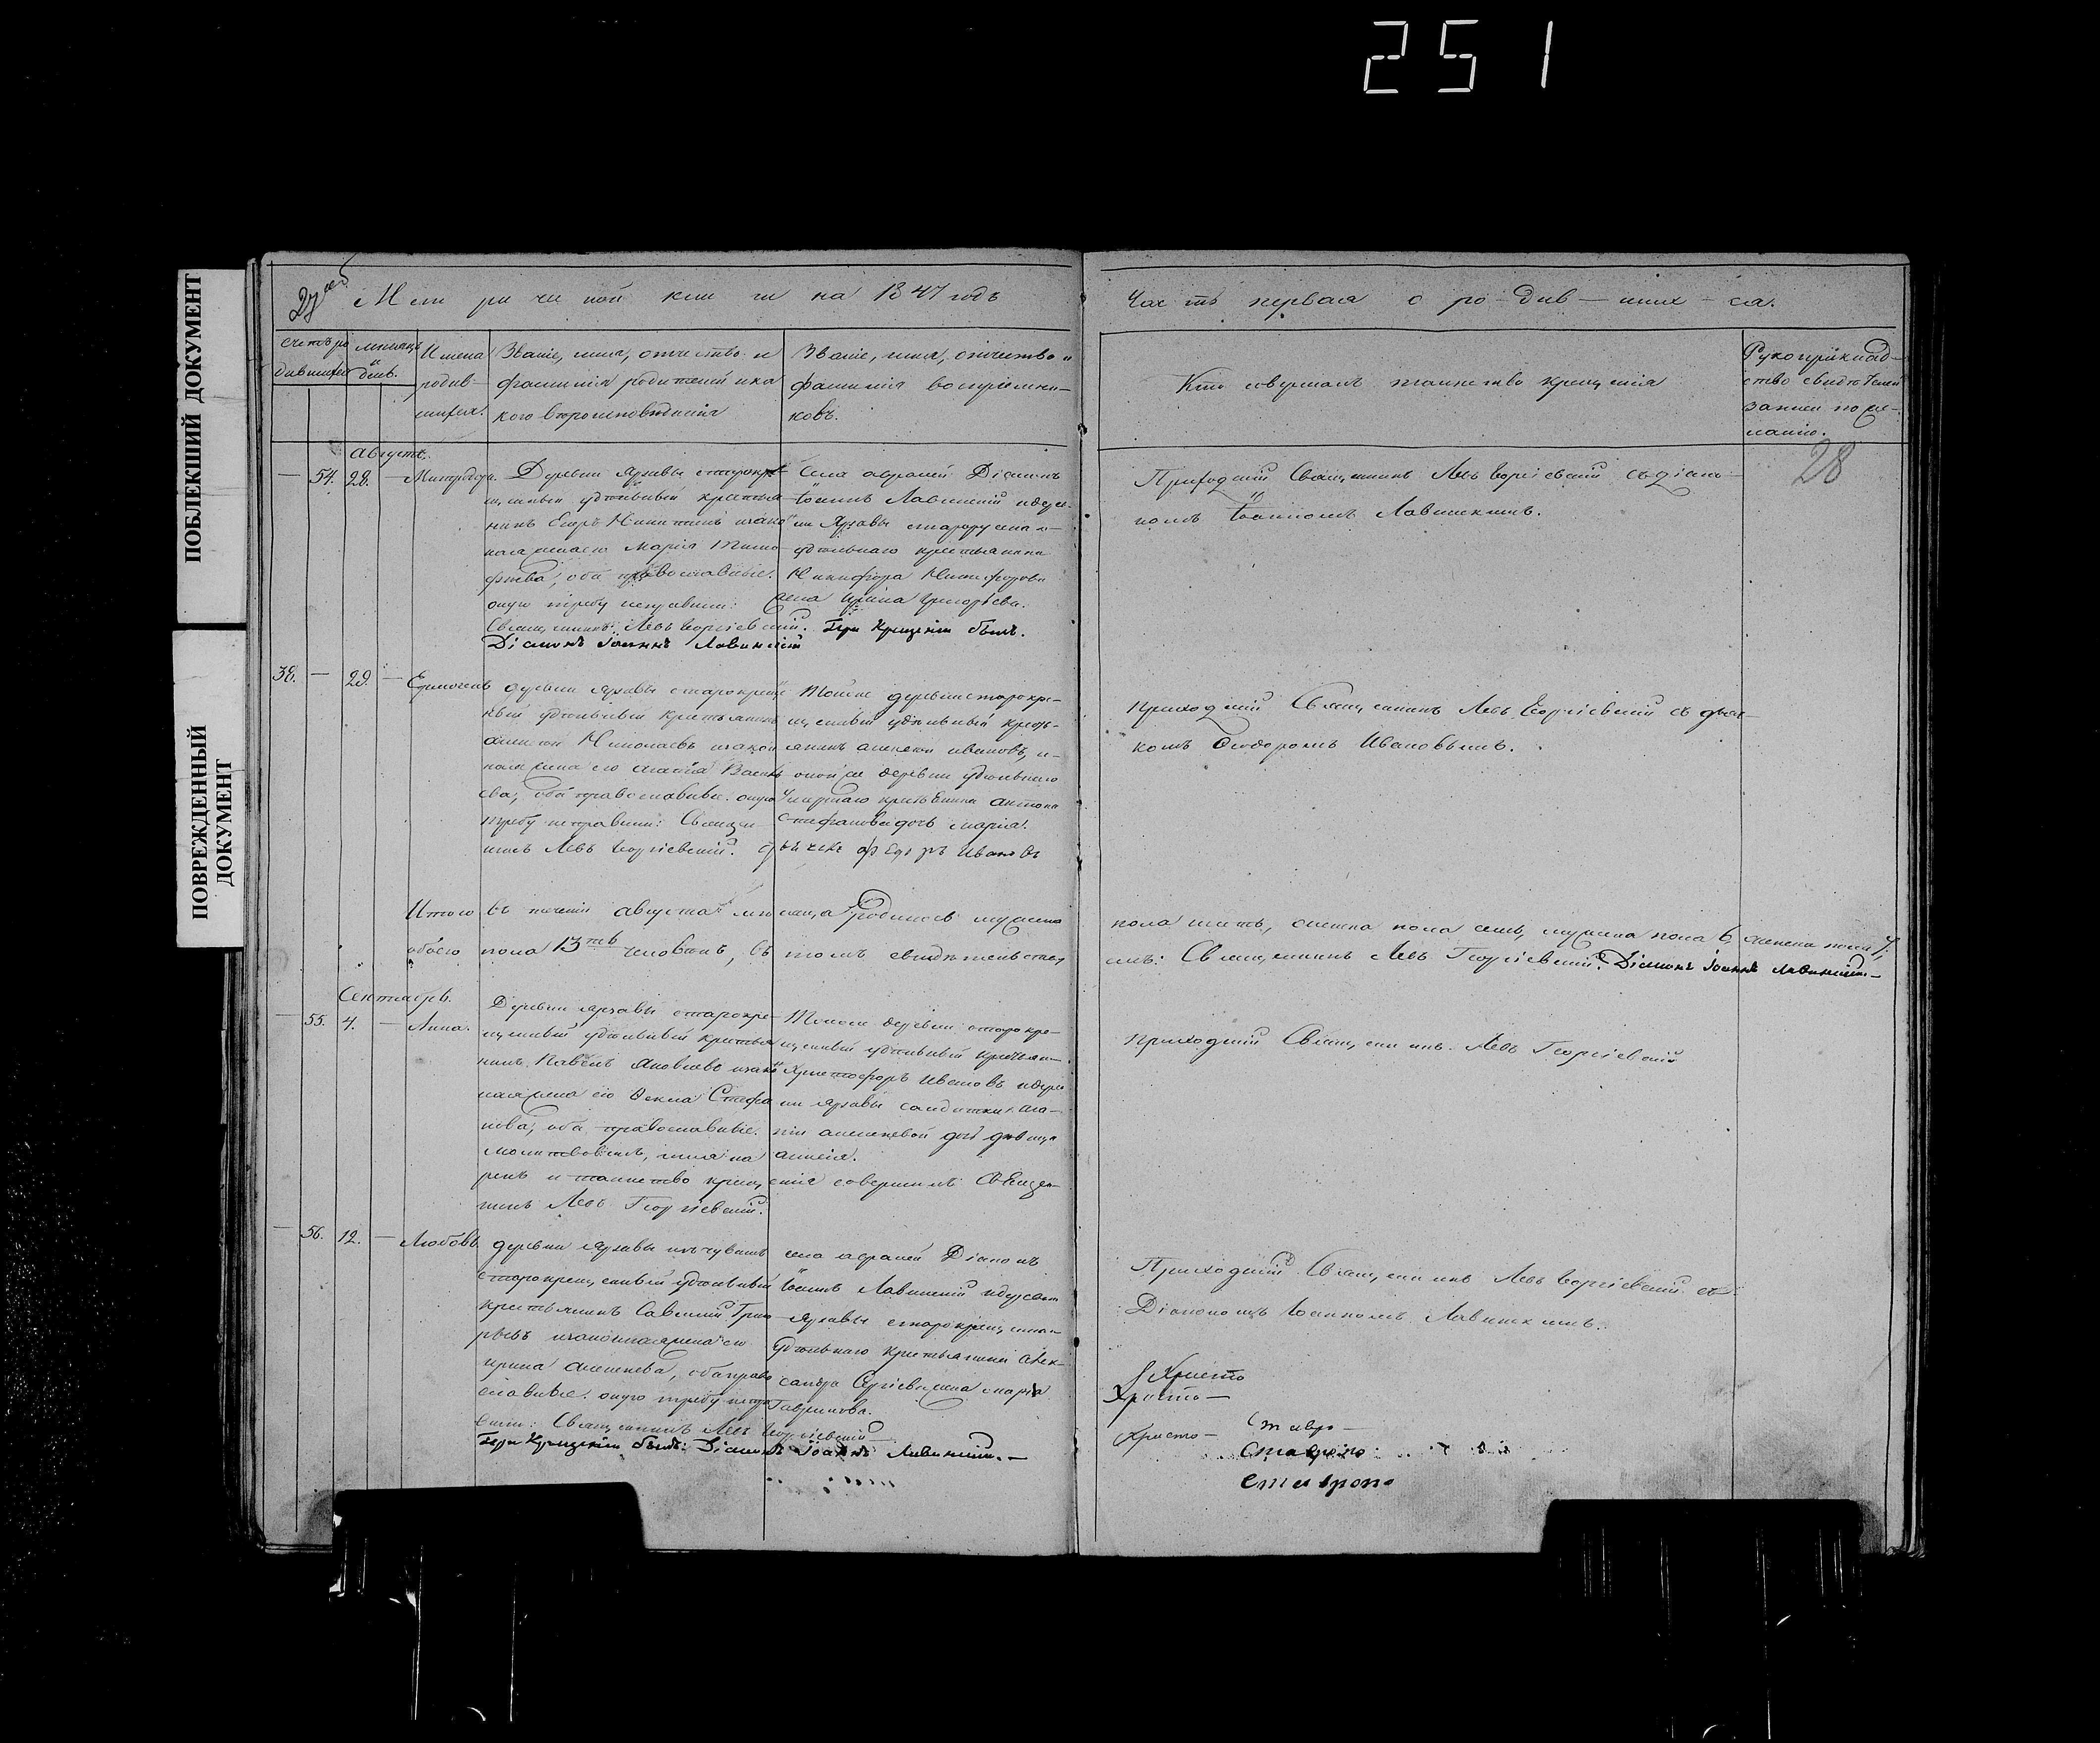 251
ПОБЛЕКШИЙ ДОКУМЕНТ
ПОВРЕЖДЕННЫЙ
ДОКУМЕНТ
Метричной книги на 1847 годъ
Часть первая о родившихся.
Счетъ ро
дившихся
мѣсяцъ
и
день.
Имена
родив-
шихся.
Званіе, имя, отчество и
фамилія родителей и ка
кого вѣроисповѣданія
Званіе, имя, отчество и
фамилія воспріемни-
ковъ.
Кто совершалъ таинство крещенія
Рукоприклад-
ство свидѣтелей
записи по же-
ланію.
28
Августъ.
54. 28.
Деревни Яржавы старокре-
щенный удѣльный крестья
нинъ Егоръ Никитинъ и зако
ная жена его Марія Тимо
феева; оба православные.
оную требу исправили:
Священникъ Левъ Георгіевскій.
Діаконъ Іоаннъ Лавинскій
Діаконъ
Іоаннъ Лавинскій и дерев-
ни Яржавы
удѣльнаго крестьянина
Никифора Никифорова
жена Ирина Григорьева.
При Крещеніи былъ.
Приходскій Священникъ Левъ Георгіевскій съ діако-
номъ Іоанномъ Лавинскимъ.
38. 29.
деревни Яржавы старокреще
ный удѣльный крестьянинъ
Алексѣй Николаевъ и закон
ная жена его
ева; оба православные. оную
требу исправили: Священ
никъ Левъ Георгіевскій.
Тойже деревни старокре-
щеный удѣльный кресть-
янинъ Алексѣй Ивановъ, и
оной же деревни удѣльнаго
Антона
Стефанова дочь Марія.
Федоръ Ивановъ
Приходскій Священникъ Левъ Георгіевскій съ дьяч-
комъ Ѳеодоромъ Ивановымъ.
Итого въ теченіи августа мѣсяца родилось мужеска
пола шесть, женска пола семь, мужеска пола 6, женска пола 7,
обоего пола 13ть человѣкъ, въ томъ свидѣтельству
емъ: Священникъ Левъ Георгіевскій. Діаконъ Іоаннъ Лавинскій
Сентябрь.
55. 4. Анна.
Деревни Яржавы старокре-
щенный удѣльный крестья
нинъ Павелъ Яковлевъ и зако
ная жена его Ѳекла Стефа
нова; оба православные.
Молитвовалъ, имя на
рекъ и таинство крещенія совершилъ Священ-
никъ Левъ Георгіевскій.
Тойже деревни старокре-
щенный удѣльный крестьян-
Христофоръ Ивановъ и дерев
ни Яржавы солдатки
Алексѣевой дочь дѣвица
Приходскій Священникъ Левъ Георгіевскій
56. 12. Любовь.
деревни Яржавы изъ чувашъ
старокрещенный удѣльный
крестьянинъ Савелій Григо
рьевъ и законная жена его
Ирина Алексѣева, оба право
славные. оную требу испра
вили: Священникъ Левъ Георгіевскій
При Крещеніи былъ: Діаконъ Іоаннъ Лавинскій.
Діаконъ
Іоаннъ Лавинскій и деревни
Яржавы старокрещеннаго
Удѣльнаго крестьянина Алек-
сандра Сергѣева жена Марѳа
Гаврилова.
Приходскій Священникъ Левъ Георгіевскій съ
Діакономъ Іоанномъ Лавинскимъ.
Христо
Христо
Христо
Ставро
Ставропо
Ставропо